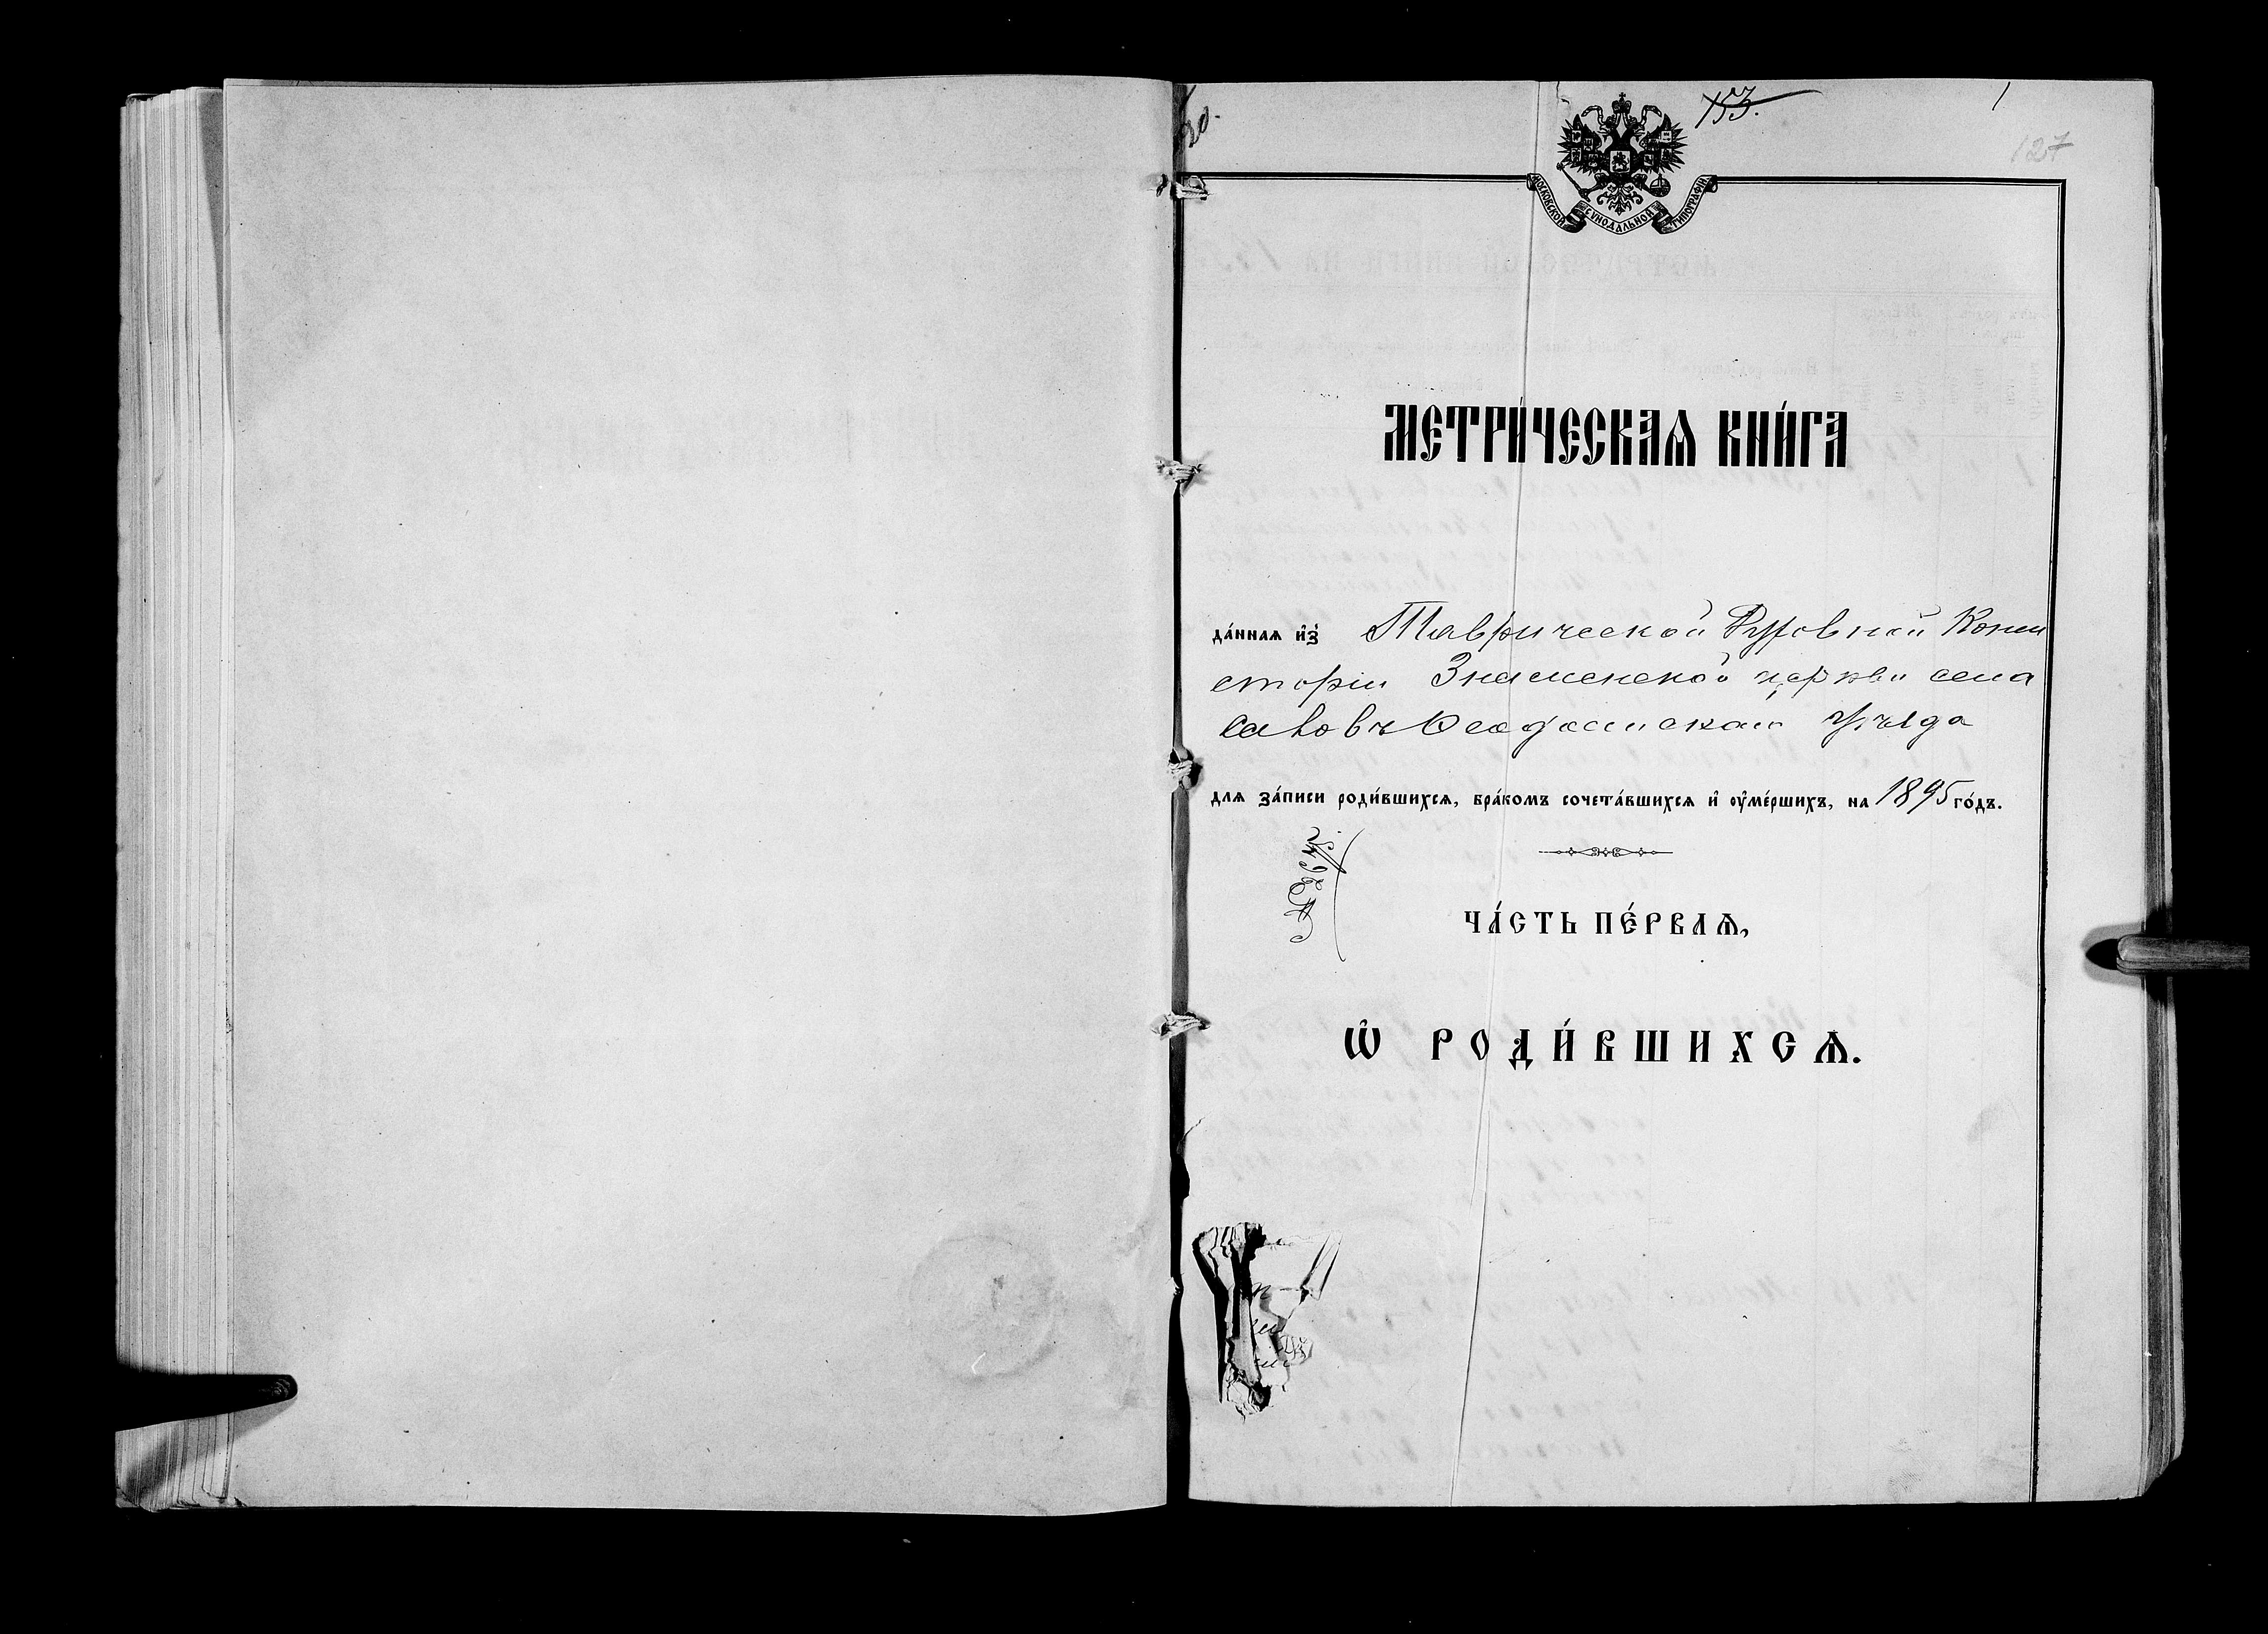 20.
153.
1
127
МОСКОВСКОЙ СѴНОДАЛЬНОЙ ТИПОГРАФІИ
МЕТРИ́ЧЕСКАѦ КНИ́ГА
да́ннаѧ и҆з̾ Таврической Духовной Конси
сторіи Знаменской церкви села
Ѳеодосійскаго Уѣзда
для за́писи роди́вшихсѧ, бра́комъ сочета́вшихсѧ и҆ ѹ҆ме́ршихъ, на 1895 го́дъ.
ЧА́СТЬ ПЕ́РВАѦ,
Ѡ҆ РОДИ́ВШИХСѦ.